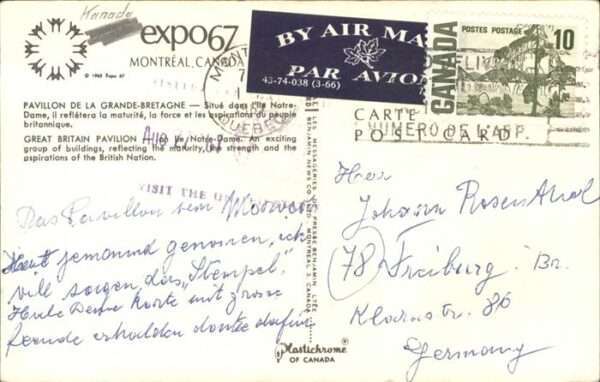 Kanada
expo67
MONTRÉAL, CANADA
© 1963 Expo 67
PAVILLON DE LA GRANDE-BRETAGNE — Situé dans l'Ile Notre-
Dame, il reflétera la maturité, la force et les aspirations du peuple
britannique.
GREAT BRITAIN PAVILION Ile Notre-Dame. An exciting
group of buildings, reflecting the maturity, the strength and the
aspirations of the British Nation.
BY AIR MA
PAR AVION
43-74-038 (3-66)
POSTES POSTAGE
10
CANADA
QUEBEC
VISIT THE
CARTE
POST CARD
NUMERO DE L'APP.
Das Pavillon
Haut jemand genossen, ich
will sagen, das „Stempel".
Habe Deine Karte mit grosse
Freude erhalten danke dafür
Herr
Johann Rosenthal
(78) Freiburg. Br.
Klarastr. 86
Germany
BENJAMIN NEWS CO. MONTREAL 3, CANADA
MESSAGERIES DE PRESSE BENJAMIN LTÉE
Plastichrome®
OF CANADA